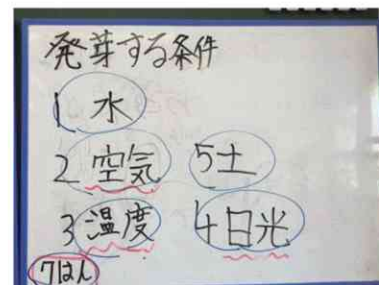 発芽する条件
1 水
2 空気 5 土
3 温度 4 日光
7はん